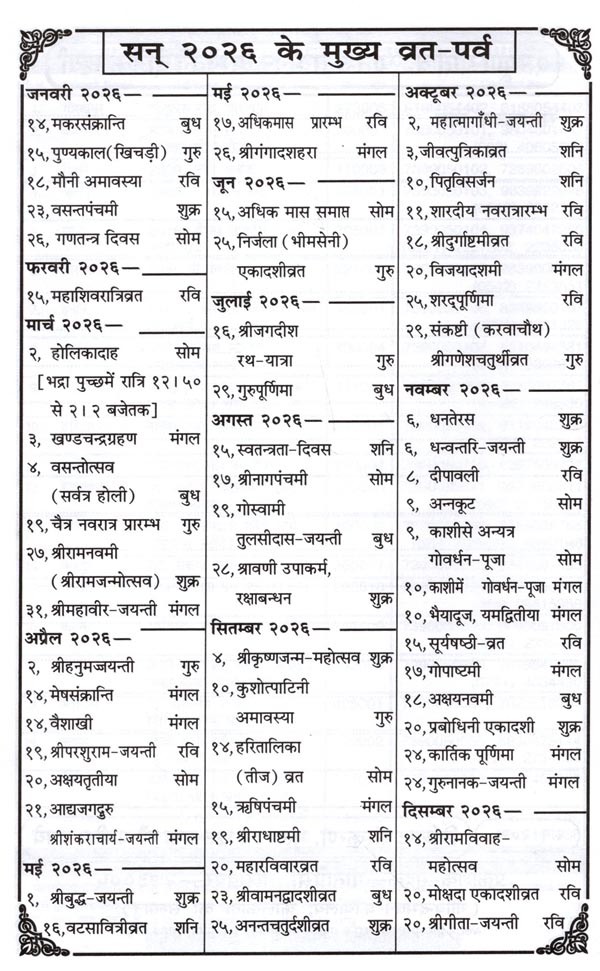 सन् २०२६ के मुख्य व्रत-पर्व
जनवरी २०२६—
१४, मकरसंक्रान्ति बुध
१५, पुण्यकाल (खिचड़ी) गुरु
१८, मौनी अमावस्या रवि
२३, वसन्तपंचमी शुक्र
२६, गणतन्त्र दिवस सोम
फरवरी २०२६—
१५, महाशिवरात्रिव्रत रवि
मार्च २०२६—
२, होलिकादाह सोम
[भद्रा पुच्छमें रात्रि १२।५०
से २।२ बजेतक]
३, खण्डचन्द्रग्रहण मंगल
४, वसन्तोत्सव
(सर्वत्र होली) बुध
१९, चैत्र नवरात्र प्रारम्भ गुरु
२७, श्रीरामनवमी
(श्रीरामजन्मोत्सव) शुक्र
३१, श्रीमहावीर-जयन्ती मंगल
अप्रैल २०२६—
२, श्रीहनुमज्जयन्ती गुरु
१४, मेषसंक्रान्ति मंगल
१४, वैशाखी मंगल
१९, श्रीपरशुराम-जयन्ती रवि
२०, अक्षयतृतीया सोम
२१, आद्यजगद्गुरु
श्रीशंकराचार्य-जयन्ती मंगल
मई २०२६—
१, श्रीबुद्ध-जयन्ती शुक्र
१६, वटसावित्रीव्रत शनि
मई २०२६—
१७, अधिकमास प्रारम्भ रवि
२६, श्रीगंगादशहरा मंगल
जून २०२६—
१५, अधिक मास समाप्त सोम
२५, निर्जला (भीमसेनी)
एकादशीव्रत गुरु
जुलाई २०२६—
१६, श्रीजगदीश
रथ-यात्रा गुरु
२९, गुरुपूर्णिमा बुध
अगस्त २०२६—
१५, स्वतन्त्रता-दिवस शनि
१७, श्रीनागपंचमी सोम
१९, गोस्वामी
तुलसीदास-जयन्ती बुध
२८, श्रावणी उपाकर्म,
रक्षाबन्धन शुक्र
सितम्बर २०२६—
४, श्रीकृष्णजन्म-महोत्सव शुक्र
१०, कुशोत्पाटिनी
अमावस्या गुरु
१४, हरितालिका
(तीज) व्रत सोम
१५, ऋषिपंचमी मंगल
१९, श्रीराधाष्टमी शनि
२०, महारविवारव्रत रवि
२३, श्रीवामनद्वादशीव्रत बुध
२५, अनन्तचतुर्दशीव्रत शुक्र
अक्टूबर २०२६—
२, महात्मागाँधी-जयन्ती शुक्र
३, जीवत्पुत्रिकाव्रत शनि
१०, पितृविसर्जन शनि
११, शारदीय नवरात्रारम्भ रवि
१८, श्रीदुर्गाष्टमीव्रत रवि
२०, विजयादशमी मंगल
२५, शरद्पूर्णिमा रवि
२९, संकष्टी (करवाचौथ)
श्रीगणेशचतुर्थीव्रत गुरु
नवम्बर २०२६—
६, धनतेरस शुक्र
६, धन्वन्तरि-जयन्ती शुक्र
८, दीपावली रवि
९, अन्नकूट सोम
९, काशीसे अन्यत्र
गोवर्धन-पूजा सोम
१०, काशीमें गोवर्धन-पूजा मंगल
१०, भैयादूज, यमद्वितीया मंगल
१५, सूर्यषष्ठी-व्रत रवि
१७, गोपाष्टमी मंगल
१८, अक्षयनवमी बुध
२०, प्रबोधिनी एकादशी शुक्र
२४, कार्तिक पूर्णिमा मंगल
२४, गुरुनानक-जयन्ती मंगल
दिसम्बर २०२६—
१४, श्रीरामविवाह-
महोत्सव सोम
२०, मोक्षदा एकादशीव्रत रवि
२०, श्रीगीता-जयन्ती रवि